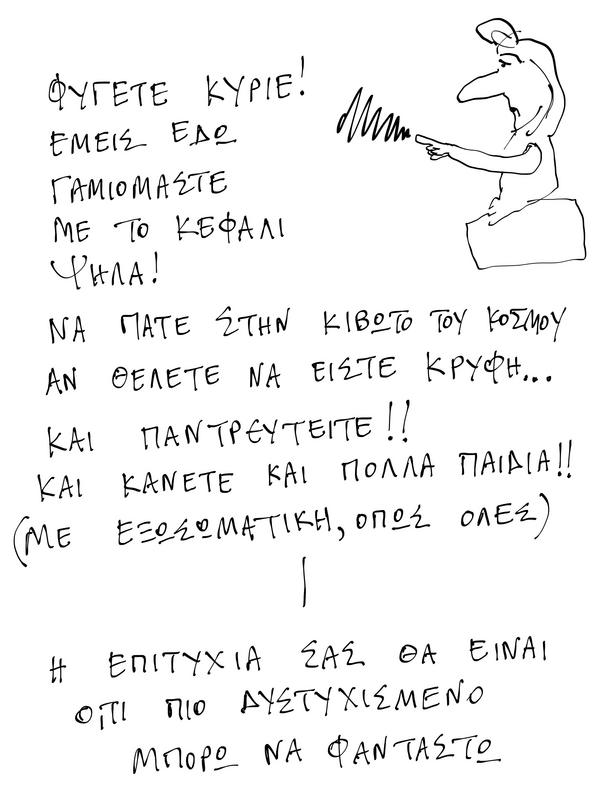 ΦΥΓΕΤΕ ΚΥΡΙΕ!
ΕΜΕΙΣ ΕΔΩ
ΓΑΜΙΟΜΑΣΤΕ
ΜΕ ΤΟ ΚΕΦΑΛΙ
ΨΗΛΑ!
ΝΑ ΠΑΤΕ ΣΤΗΝ ΚΙΒΩΤΟ ΤΟΥ ΚΟΣΜΟΥ
ΑΝ ΘΕΛΕΤΕ ΝΑ ΕΙΣΤΕ ΚΡΥΦΗ...
ΚΑΙ ΠΑΝΤΡΕΥΤΕΙΤΕ!!
ΚΑΙ ΚΑΝΕΤΕ ΚΑΙ ΠΟΛΛΑ ΠΑΙΔΙΑ!!
(ΜΕ ΕΞΩΣΩΜΑΤΙΚΗ, ΟΠΩΣ ΟΛΕΣ)
Η ΕΠΙΤΥΧΙΑ ΣΑΣ ΘΑ ΕΙΝΑΙ
ΟΤΙ ΠΙΟ ΔΥΣΤΥΧΙΣΜΕΝΟ
ΜΠΟΡΩ ΝΑ ΦΑΝΤΑΣΤΩ